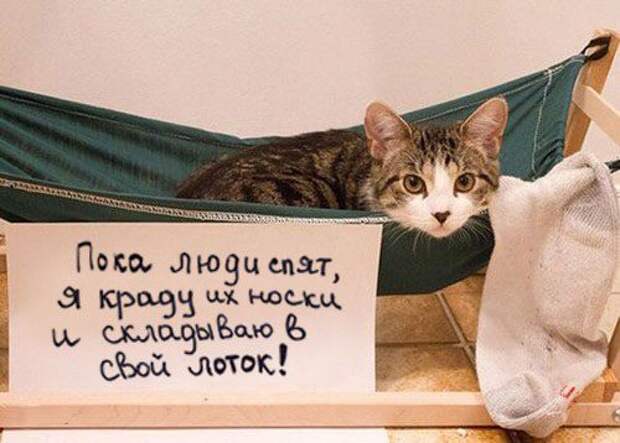 Пока люди спят,
я краду их носки
и складываю в
свой лоток!